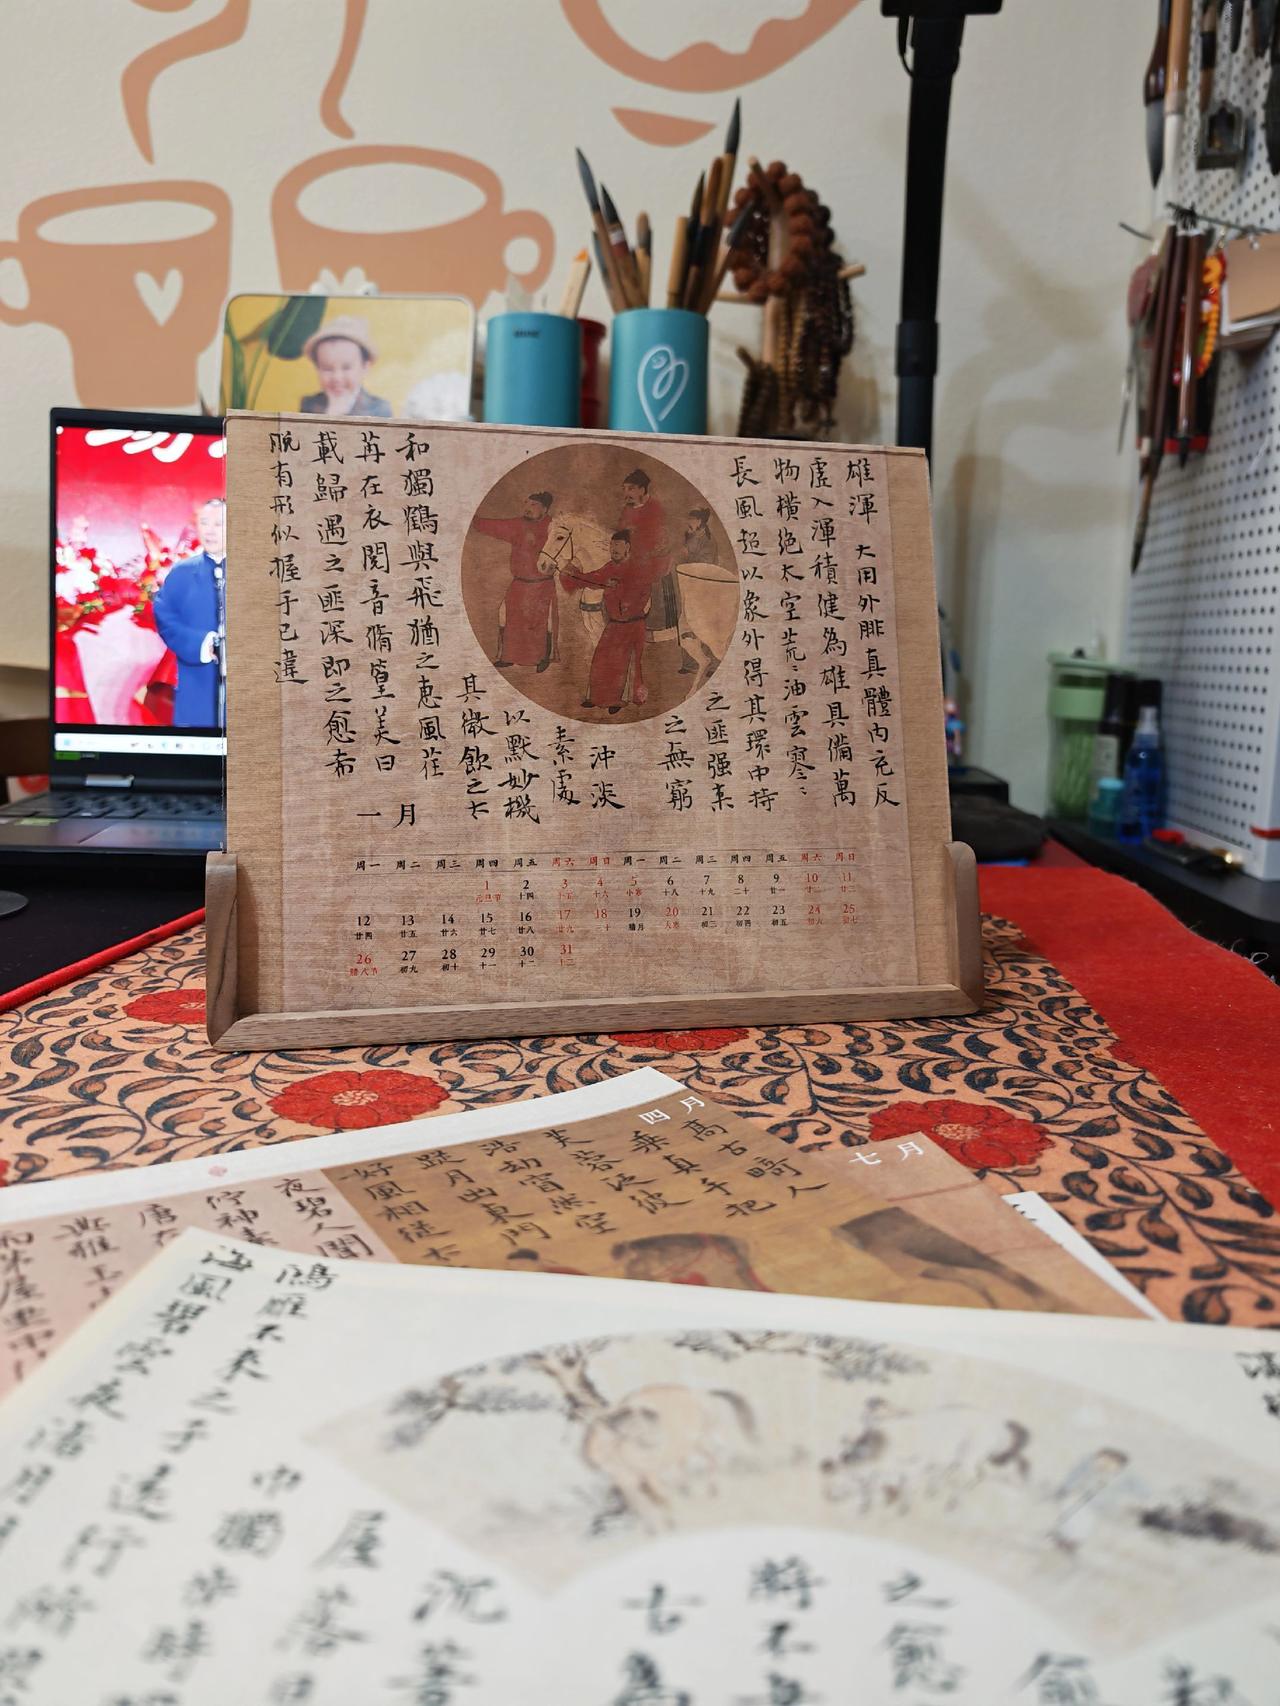 雄渾 大用外腓真體內充反
虛入渾積健為雄具備萬
物橫絕太空荒〻油雲寥〻
長風超以象外得其環中持
之匪强来
之無窮
沖淡
素處
以默妙機
其微飲之太
和獨鶴與飛猶之惠風荏
苒在衣閱音脩篁美曰
載歸遇之匪深即之愈希
脱有形似握手已違
一月
周一 周二 周三 周四 周五 周六 周日 周一 周二 周三 周四 周五 周六 周日
1 2 3 4 5 6 7 8 9 10 11
元旦节 十四 十五 十六 小寒 十八 十九 二十 廿一 廿二 廿三
12 13 14 15 16 17 18 19 20 21 22 23 24 25
廿四 廿五 廿六 廿七 廿八 廿九 三十 腊月 大寒 初三 初四 初五 初六 初七
26 27 28 29 30 31
腊八节 初九 初十 十一 十二 十三
四月
高古畸人
乘真手把
芙蓉泛彼
浩劫窅然空
蹤月出東門
好風相從太
七月
夜碧人聞
佇神素
鴻雁不来之子遠行所
海風碧雲夜渚月
巾獨步時
屋落日
沉著
古為
將不
之愈